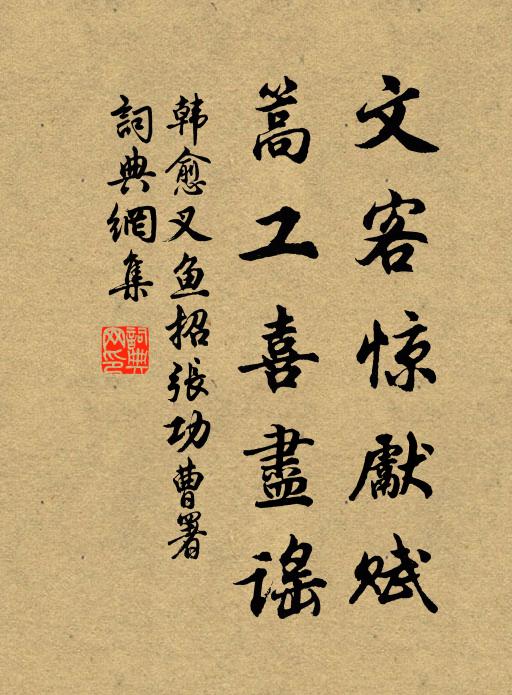 文客惊獻赋
篙工喜盡谣
韩愈叉鱼招張功曹署
詞典網集
詞典网印